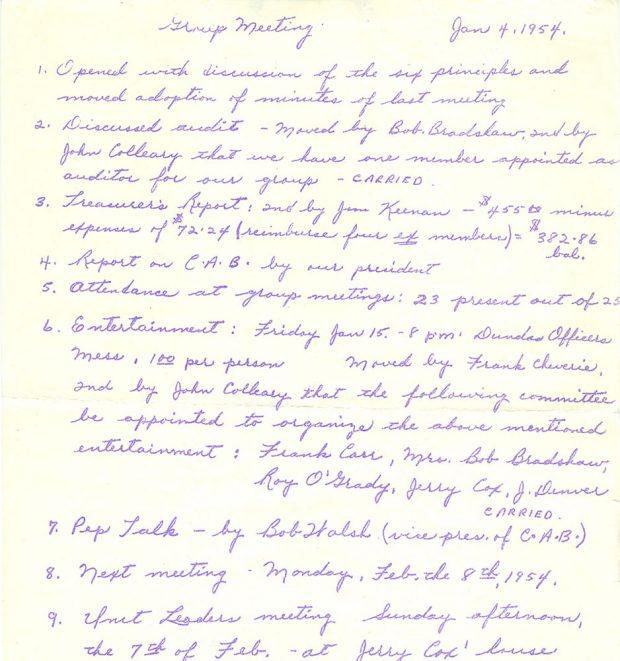 Group Meeting. Jan 4, 1954.
1. Opened with discussion of the six principles and
moved adoption of minutes of last meeting
2. Discussed audit - Moved by Bob. Bradshaw, 2nd by
John Colleary that we have one member appointed as
auditor for our group - CARRIED.
3. Treasurer's Report: 2nd by Jim Keenan - $455 00 minus
expenses of $72.24 (reimburse four ex members) = $382.86
bal.
4. Report on C.A.B. by our president
5. Attendance at group meetings: 23 present out of 25
6. Entertainment: Friday Jan 15. - 8 pm. Dundas Officers
Mess, 1 00 per person Moved by Frank Cheverie,
2nd by John Colleary that the following committee
be appointed to organize the above mentioned
entertainment: Frank Carr, Mrs. Bob Bradshaw,
Roy O'Grady, Jerry Cox, J. Denver
CARRIED.
7. Pep Talk - by Bob Walsh (vice pres. of C.A.B.)
8. Next meeting - Monday, Feb. the 8th, 1954.
9. Unit Leaders meeting Sunday afternoon,
the 7th of Feb. - at Jerry Cox' house